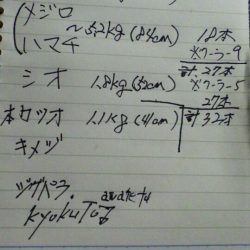 メジロ
ハマチ ~5.2kg (84cm) 18本
クーラー9
計 27本
シオ 1.8kg (52cm) クーラー5
27本
本カツオ 1.1kg (41cm) 計32本
キメジ
ジグパラ